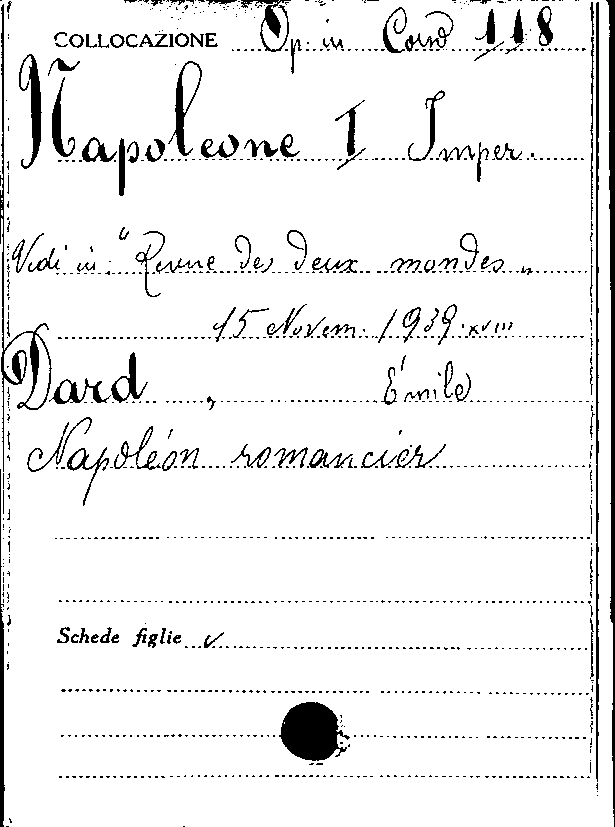 COLLOCAZIONE Op. in Corso 118
Napoleone I Imper.
Vedi in: "Revue des deux mondes„
15 Novem. 1939.XVIII
Dard, Émile
Napoléon romancier
Schede figlie ✓